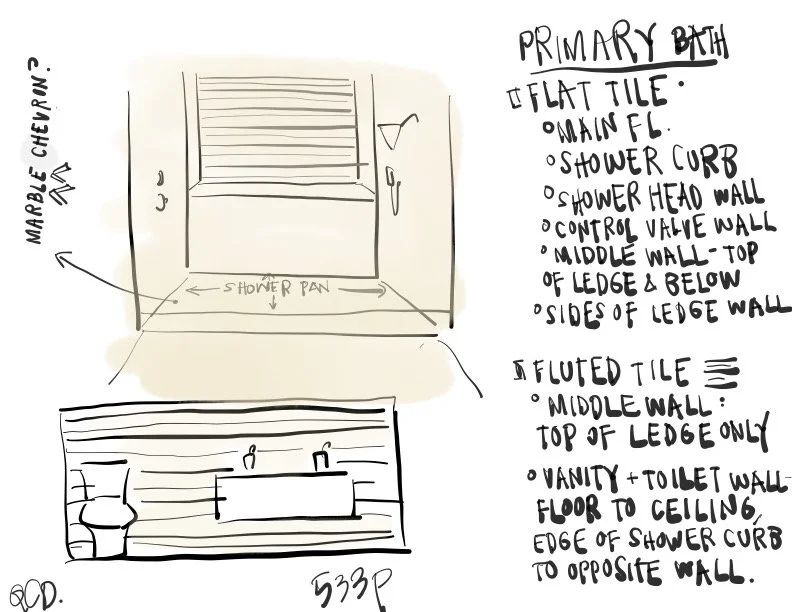 PRIMARY BATH
FLAT TILE.
MAIN FL.
SHOWER CURB
SHOWER HEAD WALL
CONTROL VALVE WALL
MIDDLE WALL - TOP
OF LEDGE & BELOW
SIDES OF LEDGE WALL
FLUTED TILE
MIDDLE WALL:
TOP OF LEDGE ONLY
VANITY + TOILET WALL-
FLOOR TO CEILING,
EDGE OF SHOWER CURB
TO OPPOSITE WALL.
MARBLE CHEVRON?
SHOWER PAN
QCD.
533P